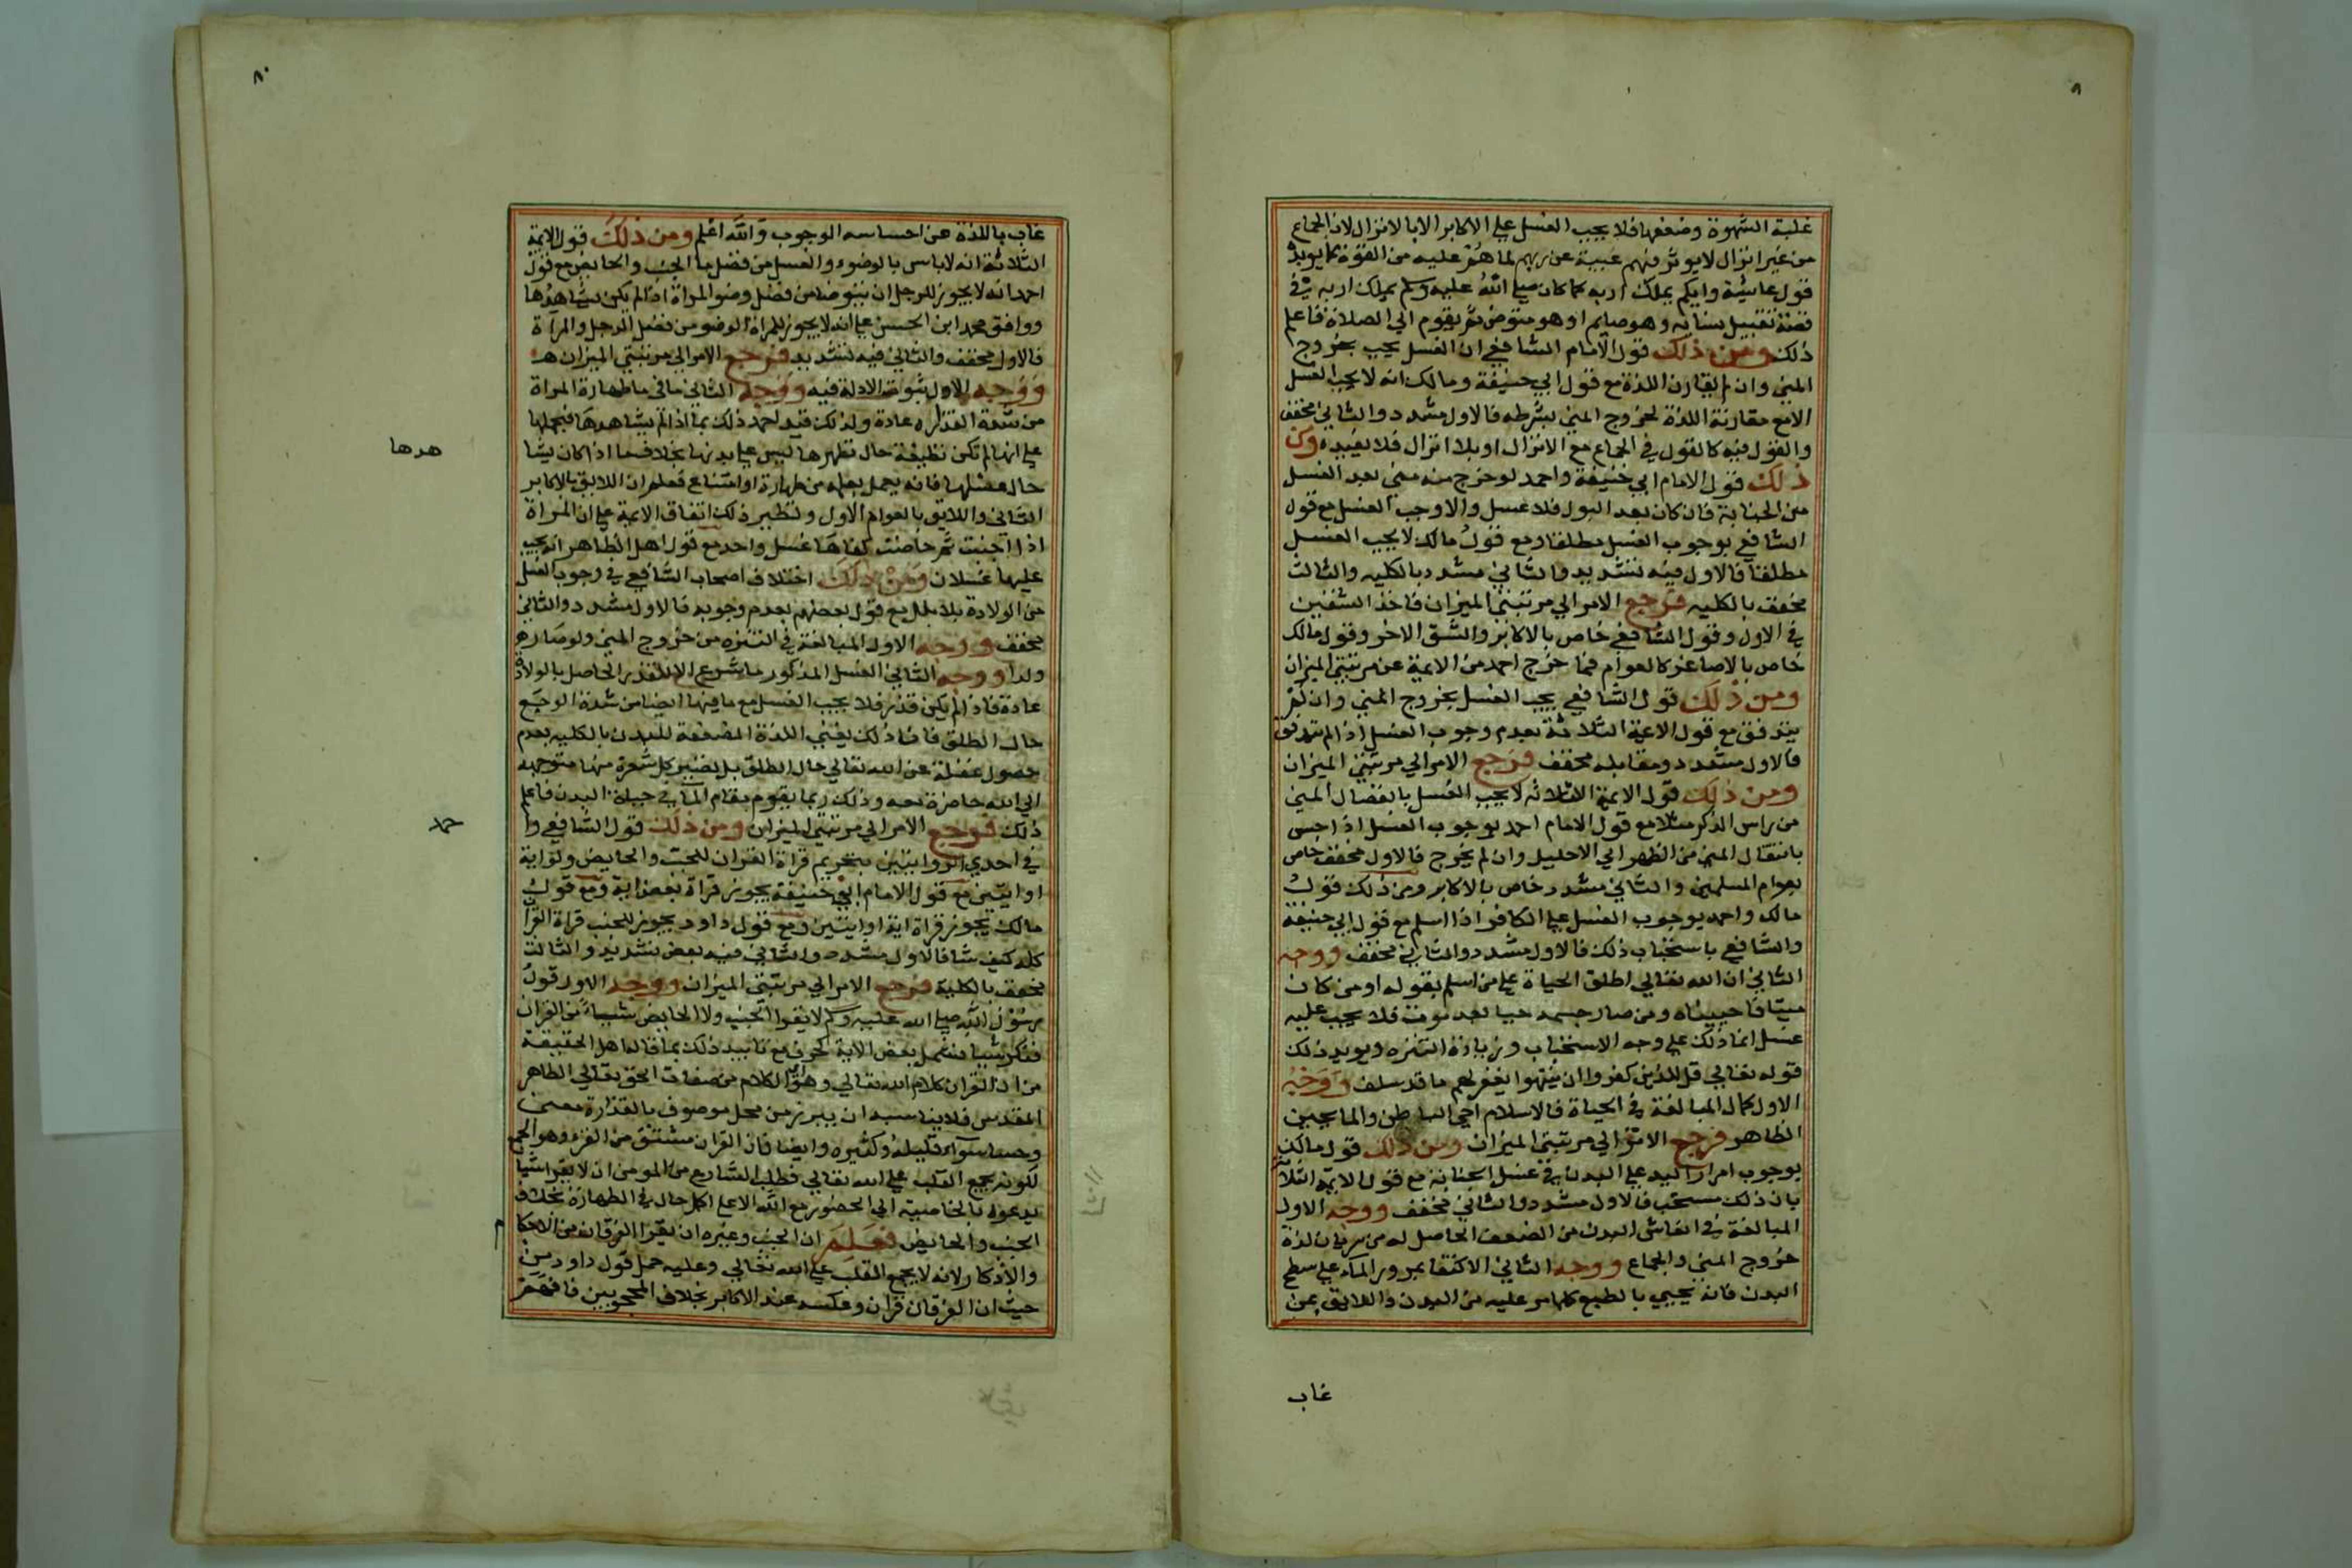 غلبة الشهوة وضعفها فلا يجب الغسل علي الاكابر الا بالانزال لان الجماع
من غير انزال لا يوثر فيهم غيبة عن ربهم لما هم عليه من القوة كما يويده
قول عائشة وايكم يملك اربه كما كان صلي الله عليه وسلم يملك اربه في
قصة تقبيل نسايه وهو صايم او هو متوضي ثم يقوم الي الصلاة فاعلم
ذلك ومن ذلك قول الامام الشافعي ان الغسل يجب بخروج
المني وان لم يقارن اللذة مع قول ابي حنيفة ومالك انه لا يجب الغسل
الا مع مقارنة اللذة لخروج المني بشرطه فالاول مشدد والثاني مخفف
والقول فيه كالقول في الجماع مع الانزال او بلا انزال فلا نعيده ومن
ذلك قول الامام ابي حنيفة واحمد لو خرج منه مني بعد الغسل
من الجنابة فان كان بعد البول فلا غسل والا وجب الغسل مع قول
الشافعي بوجوب الغسل مطلقا ومع قول مالك لا يجب الغسل
مطلقا فالاول فيه تشديد والثاني مشدد بالكليه والثالث
مخفف بالكليه فرجع الامر الي مرتبتي الميزان فاخذ الشقين
في الاول وقول الشافعي خاص بالاكابر والشق الاخر وقول مالك
خاص بالاصاغر كالعوام فما خرج احد من الايمة عن مرتبتي الميزان
ومن ذلك قول الشافعي يجب الغسل بخروج المني وان لم
يتدفق مع قول الايمة الثلاثة بعدم وجوب الغسل اذا لم يتدفق
فالاول مشدد ومقابله مخفف فرجع الامر الي مرتبتي الميزان
ومن ذلك قول الايمة الثلاثه لا يجب الغسل بانفصال المني
من راس الذكر مثلا مع قول الامام احمد بوجوب الغسل اذا احس
بانتقال المني من الظهر الي الاحليل وان لم يخرج فالاول مخفف خاص
بعوام المسلمين والثاني مشدد خاص بالاكابر ومن ذلك قول
مالك واحمد بوجوب الغسل علي الكافر اذا اسلم مع قول ابي حنيفة
والشافعي باستحباب ذلك فالاول مشدد والثاني مخفف ووجه
الثاني ان الله تعالي اطلق الحياة علي من اسلم بقوله او من كان
ميتا فاحييناه ومن صار جسمه حيا بعد موت فلا يجب عليه
غسل انما ذلك علي وجه الاستحباب وزيادة التنزه ويويد ذلك
قوله تعالي قل للذين كفروا ان ينتهوا يغفر لهم ما قد سلف ووجه
الاول كمال المبالغة في الحياة فالاسلام احي الباطن والما يحيي
الظاهر فرجع الامر الي مرتبتي الميزان ومن ذلك قول مالك
بوجوب امرار اليد علي البدن في غسل الجنابة مع قول الايمة الثلاثة
بان ذلك مستحب فالاول مشدد والثاني مخفف ووجه الاول
المبالغة في انعاش البدن من الضعف الحاصل له من سريان لذة
خروج المني والجماع ووجه الثاني الاكتفا بمرور الماء علي سطح
البدن فانه يحيي بالطبع كلما مر عليه من البدن واللايق بمن
غاب
٨٠
غاب باللذة عن احساسه الوجوب والله اعلم ومن ذلك قول الايمة
الثلاثة انه لا باس بالوضوء والغسل من فضل ما الجنب والحايض مع قول
احمد انه لا يجوز للرجل ان يتوضا من فضل وضو المراة اذا لم يكن يشاهدها
ووافق محمد ابن الحسن علي انه لا يجوز للمراة الوضو من فضل الرجل والمراة
فالاول مخفف والثاني فيه تشديد فرجع الامر الي مرتبتي الميزان
ووجه الاول ثبوت الادلة فيه ووجه الثاني ما في ما طهارة المراة
من شدة القذاره عادة ولذلك قيد احمد ذلك بما اذا لم يشاهدها فيحملها
علي انها لم تكن نظيفة حال تطهرها ليس علي بدنها بخلاف ما اذا كان يشا
هدها
حال غسلها فانه يعمل بعلمه من طهارة او امتناع فعلم ان اللايق بالاكابر
الثاني واللايق بالعوام الاول ونظير ذلك اتفاق الايمة علي ان المراة
اذا اجنبت ثم حاضت كفاها غسل واحد مع قول اهل الظاهر انه يجب
عليها غسلان ومن ذلك اختلاف اصحاب الشافعي في وجوب الغسل
من الولادة بلا بلل مع قول بعضهم بعدم وجوبه فالاول مشدد والثاني
مخفف ووجه الاول المبالغة في التنزه من خروج المني ولو صار
ولدا ووجه الثاني الغسل المذكور ما شرع الا للقذر الحاصل بالولادة
عادة فاذا لم يكن قذر فلا يجب الغسل مع ما فيها ايضا من شدة الوجع
حال الطلق فان ذلك يفني اللذة المضعفة للبدن بالكليه بعدم
حصول غفلة عن الله تعالي حال الطلق بل تصير كل شعرة منها متوجهة
الي الله حاضرة معه وذلك ربما يقوم مقام الما في حياة البدن فاعلم
ذلك فرجع الامر الي مرتبتي الميزان ومن ذلك قول الشافعي وا
حمد
في احدي الروايتين بتحريم قراة القران للجنب والحايض ولو اية
او ايتين مع قول الامام ابي حنيفة يجوز قراة بعض اية ومع قول
مالك يجوز قراة اية او ايتين ومع قول داود يجوز للجنب قراة القران
كله كيف شا فالاول مشدد والثاني فيه بعض تشديد والثالث
مخفف بالكلية فرجع الامر الي مرتبتي الميزان ووجه الاول قول
رسول الله صلي الله عليه وسلم لا يقرا الجنب ولا الحايض شيا من القران
فنكر شيا فشمل بعض الاية كحرف مع تاييد ذلك بما قاله اهل الحقيقة
من ان القران كلام الله تعالي وهو اي الكلام من صفات الحق تعالي الطاهر
المقدس فلا يناسبه ان يبرز من محل موصوف بالقذارة معني
وحسا سوآء قليله وكثيره وايضا فان القران مشتق من القرء وهو الجمع
لكونه يجمع القلب علي الله تعالي فطلب الشارع من المومن ان لا يقرا شيا
يدعوه بالخاصية الي الحضور مع الله الا علي اكمل حال في الطهارة بخلاف
الجنب والحايض فعلم ان الجنب وغيره ان يقرا الفرقان من الاحكا
م
والاذكار لانه لا يجمع القلب علي الله تعالي وعليه حمل قول داود من
حيث ان الفرقان قران وعكسه عند الاكابر بخلاف المحجوبين فافهم